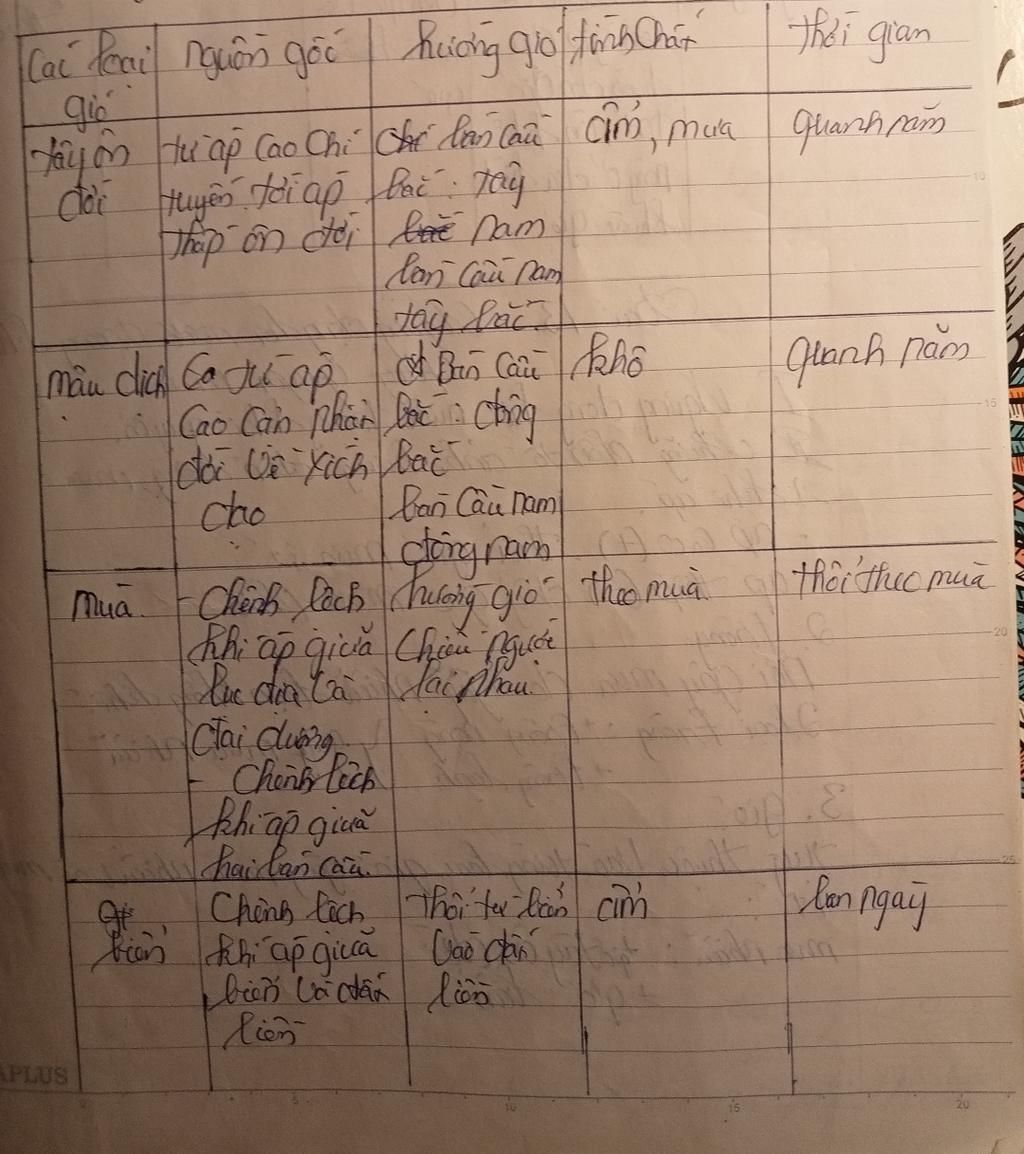 Các loại gió | nguồn gốc | hướng gió | tính chất | thời gian
tây ôn đới | từ áp cao chí tuyến tới áp thấp ôn đới | bán cầu bắc: tây nam bán cầu nam tây bắc | ẩm, mưa | quanh năm
mậu dịch | từ áp cao cận nhiệt đới về xích đạo | Bán cầu bắc: đông bắc bán cầu nam đông nam | khô | quanh năm
mùa | - Chênh lệch khí áp giữa lục địa và đại dương - Chênh lệch khí áp giữa hai bán cầu | hướng gió chiều ngược lại nhau. | theo mùa. | thổi theo mùa
biển | Chênh lệch khí áp giữa biển và đất liền | thổi từ biển vào đất liền | ẩm | ban ngày
APLUS
5 10 15 20
10
15
20
25